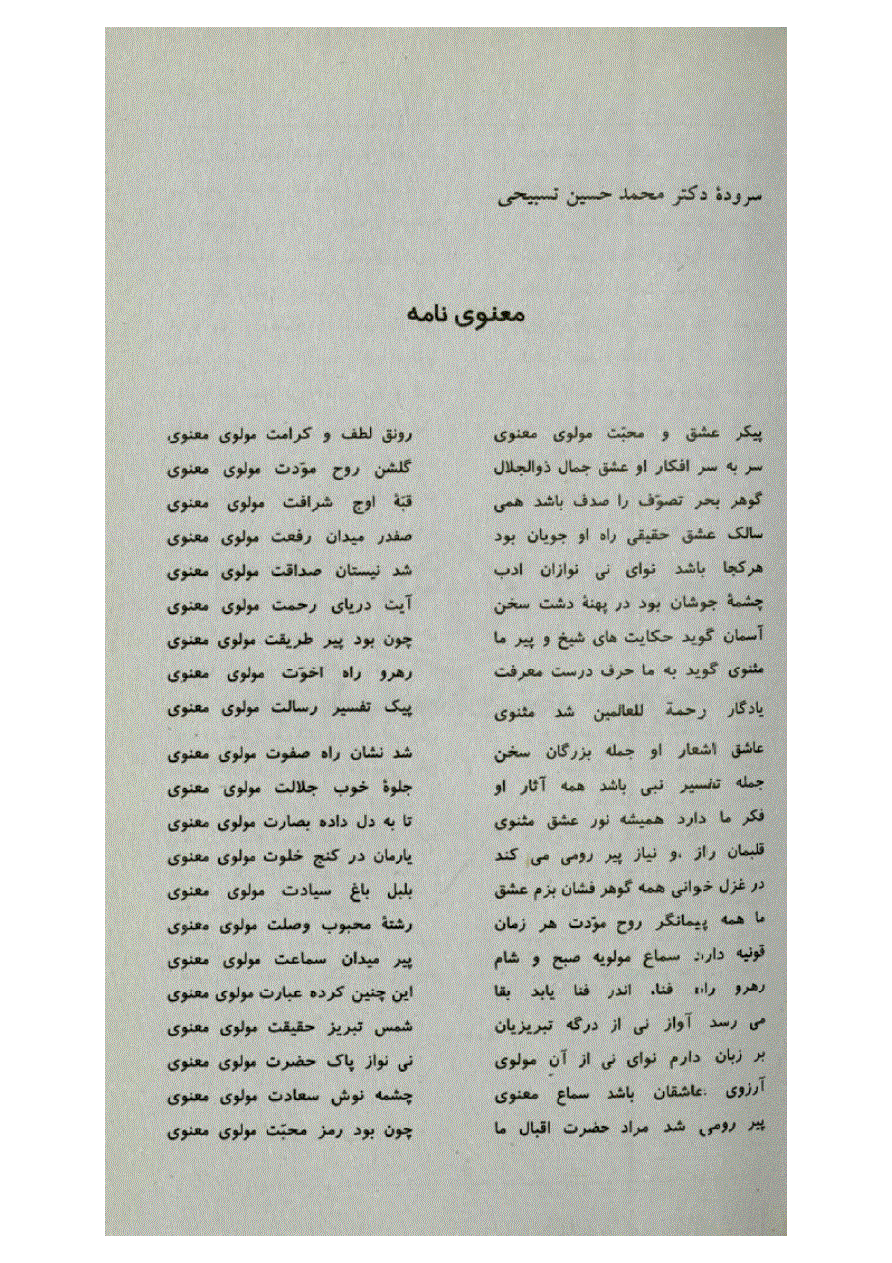 سرودهٔ دکتر محمد حسین تسبیحی
معنوی نامه
پیکر عشق و محبّت مولوی معنوی رونق لطف و کرامت مولوی معنوی
سر به سر افکار او عشق جمال ذوالجلال گلشن روح موّدت مولوی معنوی
گوهر بحر تصوّف را صدف باشد همی قبّهٔ اوج شرافت مولوی معنوی
سالک عشق حقیقی راه او جویان بود صفدر میدان رفعت مولوی معنوی
هرکجا باشد نوای نی نوازان ادب شد نیستان صداقت مولوی معنوی
چشمهٔ جوشان بود در پهنهٔ دشت سخن آیت دریای رحمت مولوی معنوی
آسمان گوید حکایت های شیخ و پیر ما چون بود پیر طریقت مولوی معنوی
مثنوی گوید به ما حرف درست معرفت رهرو راه اخوّت مولوی معنوی
یادگار رحمة للعالمین شد مثنوی پیک تفسیر رسالت مولوی معنوی
عاشق اشعار او جمله بزرگان سخن شد نشان راه صفوت مولوی معنوی
جمله تفسیر نبی باشد همه آثار او جلوهٔ خوب جلالت مولوی معنوی
فکر ما دارد همیشه نور عشق مثنوی تا به دل داده بصارت مولوی معنوی
قلبمان راز و نیاز پیر رومی می کند یارمان در کنج خلوت مولوی معنوی
در غزل خوانی همه گوهر فشان بزم عشق بلبل باغ سیادت مولوی معنوی
ما همه پیمانگر روح موّدت هر زمان رشتهٔ محبوب وصلت مولوی معنوی
قونیه دارد سماع مولویه صبح و شام پیر میدان سماعت مولوی معنوی
رهرو راه فنا، اندر فنا یابد بقا این چنین کرده عبارت مولوی معنوی
می رسد آواز نی از درگه تبریزیان شمس تبریز حقیقت مولوی معنوی
بر زبان دارم نوای نی از آن مولوی نی نواز پاک حضرت مولوی معنوی
آرزوی عاشقان باشد سماع معنوی چشمه نوش سعادت مولوی معنوی
پیر رومی شد مراد حضرت اقبال ما چون بود رمز محبّت مولوی معنوی